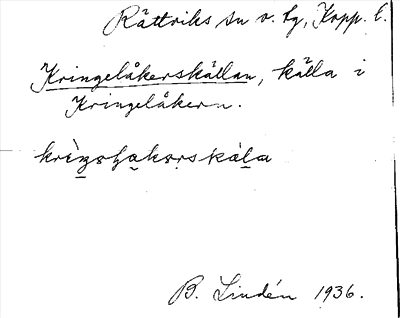 Rättviks sn o. tg, Kopp. l.
Kringelåkerskällan, källa i
Kringelåkern.
B. Lindén 1936.